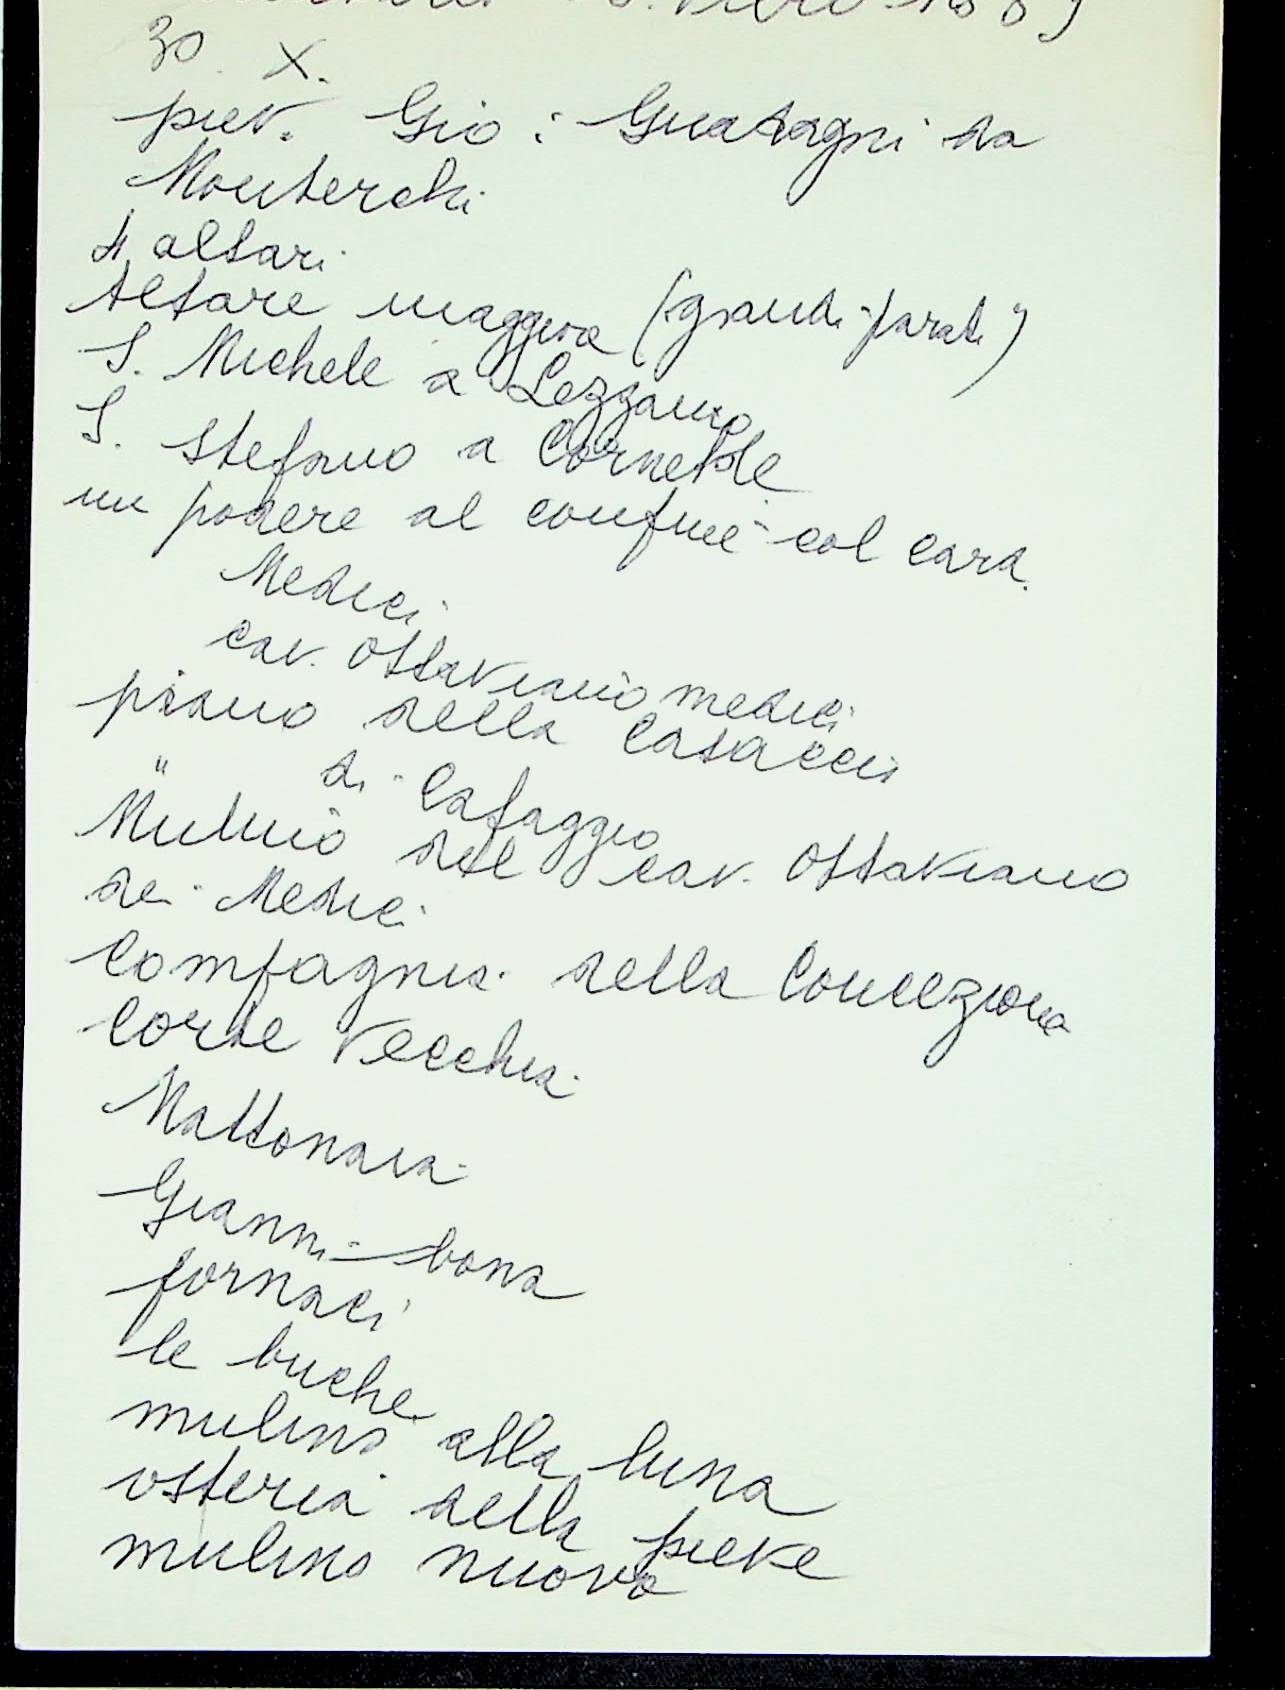 30. X.
piev. Gio: Guadagni da
Monterchi
4 altari
Altare maggiore (grandi parati)
S. Michele a Lezzano
S. Stefano a Cornetole
un podere al confine col card.
Medici
cav. Ottaviano medici
piano della Casaccia
" di Cafaggio
Mulino del cav. Ottaviano
dei Medici
Compagnia della Concezione
Corte Vecchia
Mattonaia
Gianni-bona
fornaci
le buche
mulino alla luna
osteria della pieve
mulino nuovo